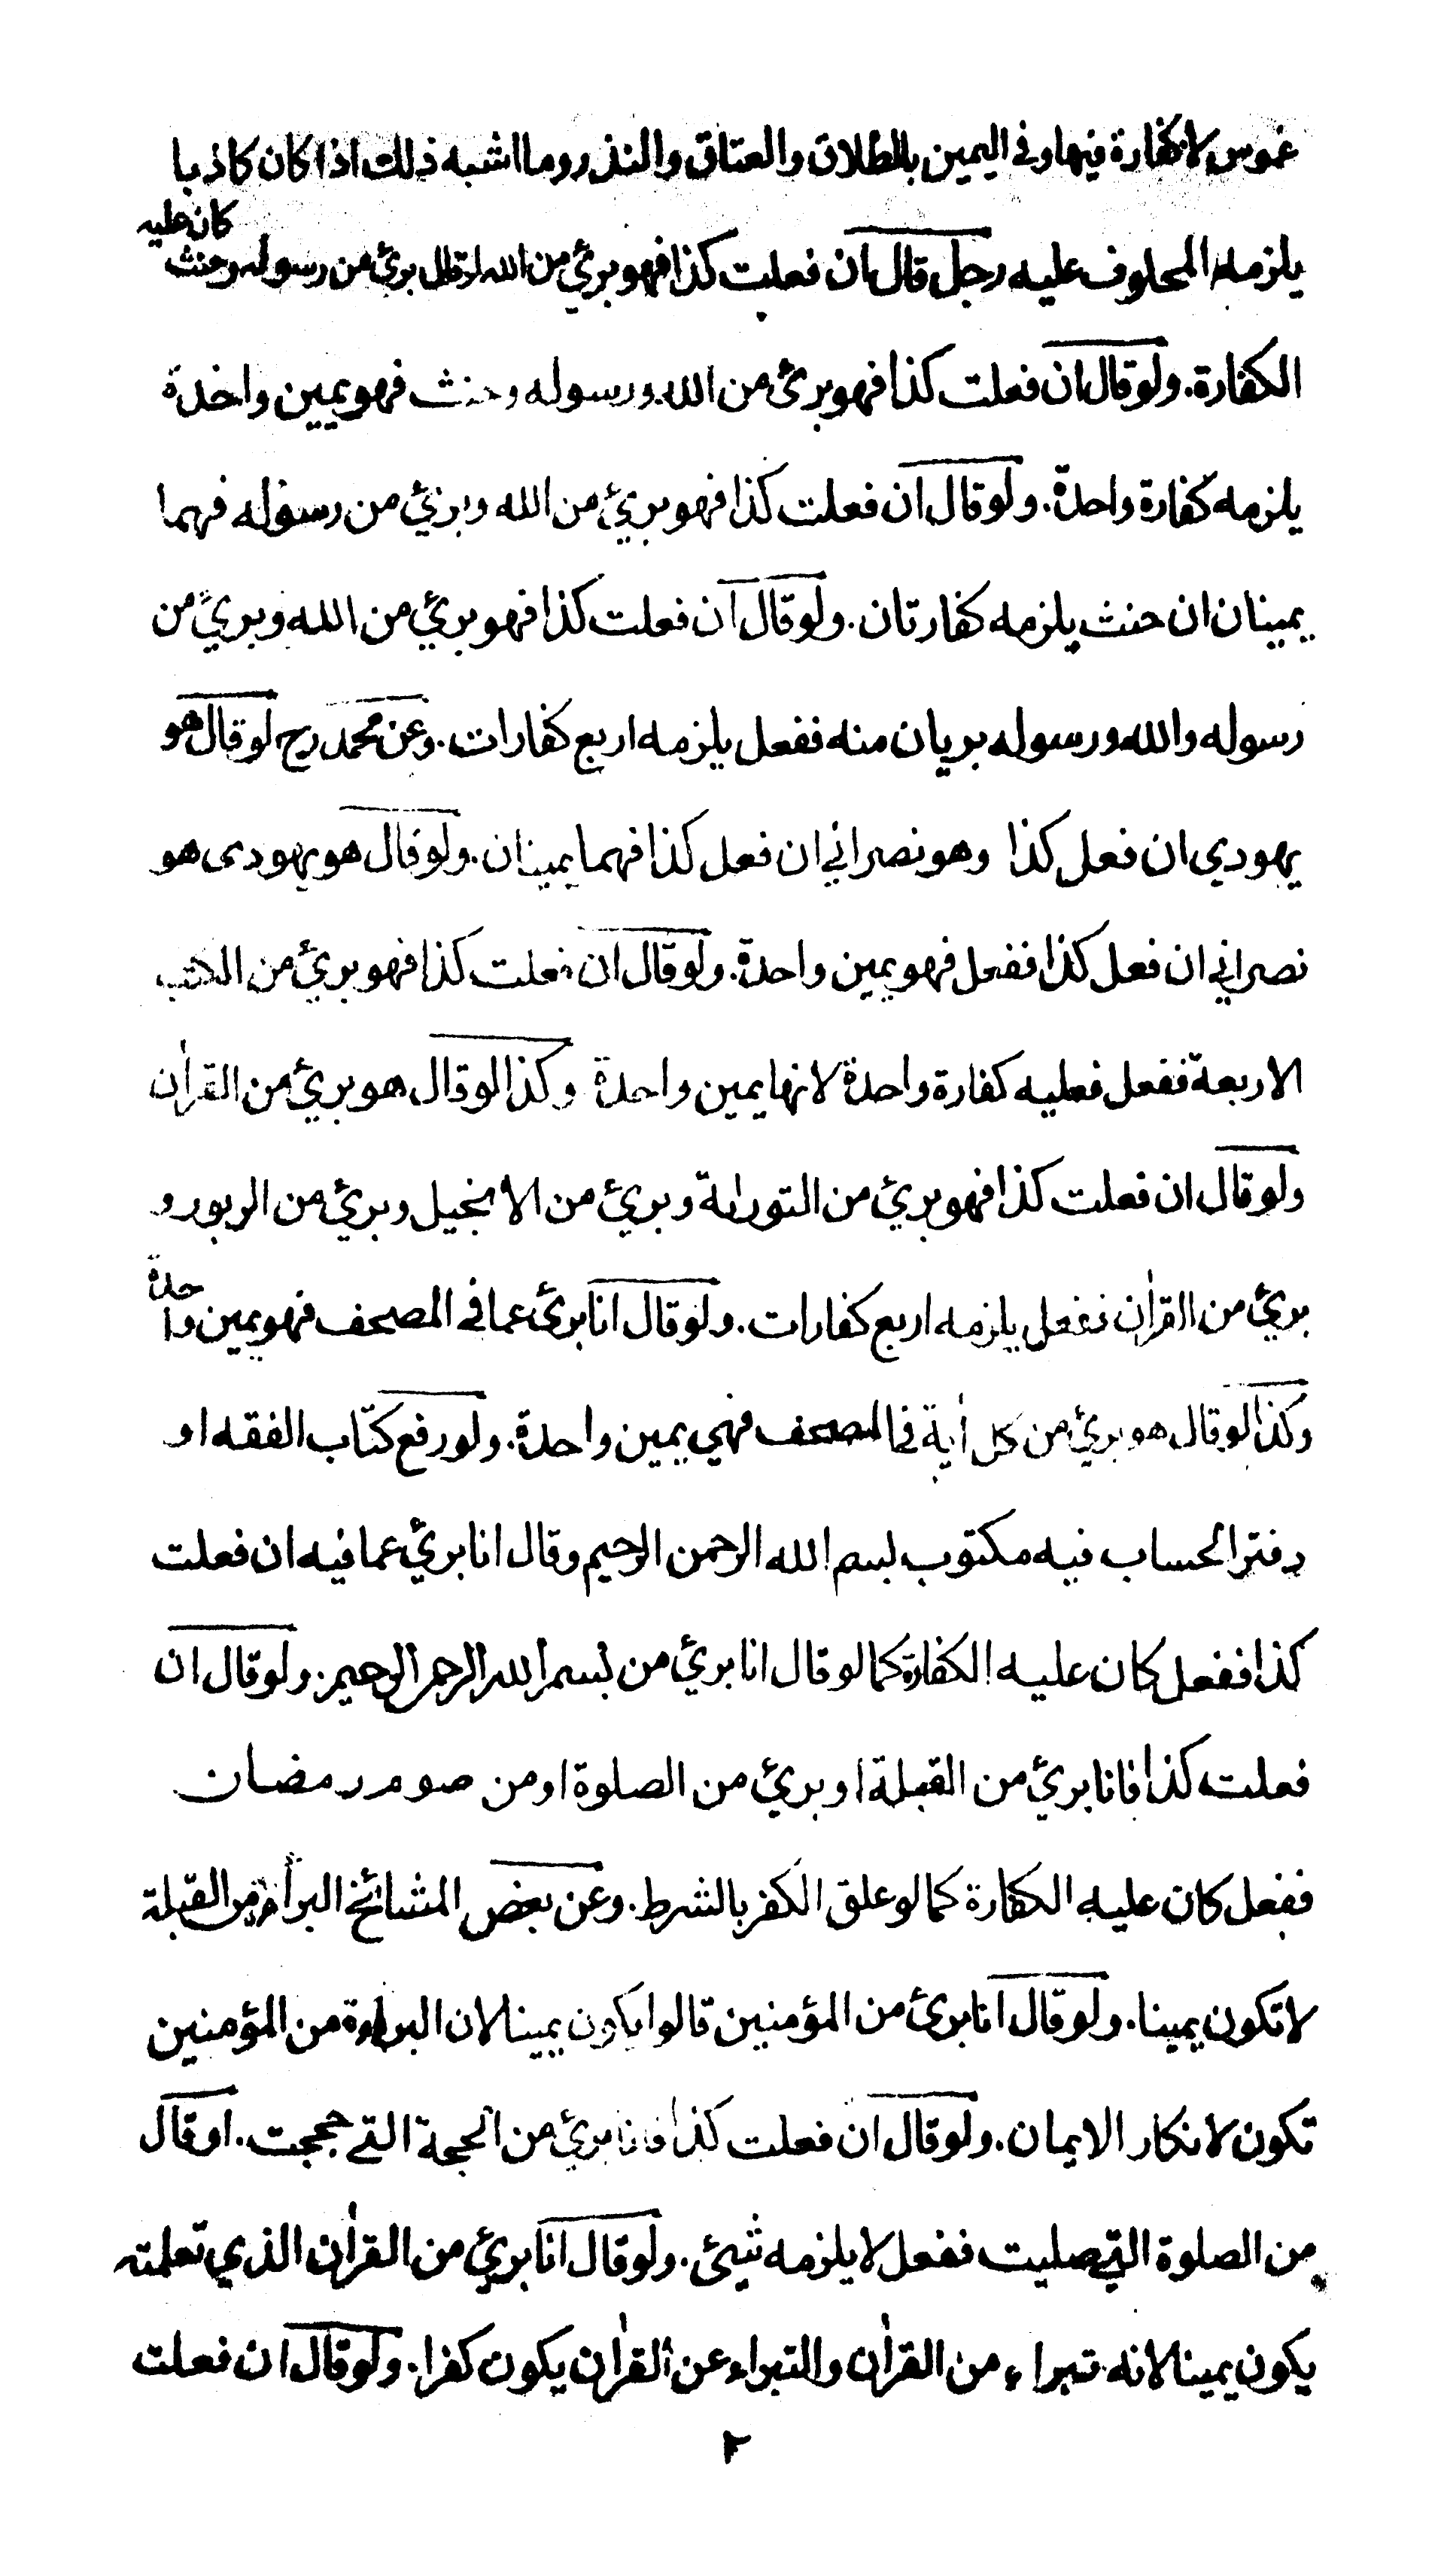 غموس لا كفارة فيها وفي اليمين بالطلاق والعتاق والنذر وما اشبه ذلك اذا كان كاذبا
يلزمه المحلوف عليه رجل قال ان فعلت كذا فهو برئ من الله او قال برئ من رسوله وحنث كان عليه
الكفارة. ولو قال ان فعلت كذا فهو برئ من الله ورسوله وحنث فهو يمين واحدة
يلزمه كفارة واحدة. ولو قال ان فعلت كذا فهو برئ من الله وبرئ من رسوله فهما
يمينان ان حنث يلزمه كفارتان. ولو قال ان فعلت كذا فهو برئ من الله وبرئ من
رسوله والله ورسوله بريان منه ففعل يلزمه اربع كفارات. وعن محمد رح لو قال هو
يهودي ان فعل كذا وهو نصراني ان فعل كذا فهما يمينان. ولو قال هو يهودى هو
نصراني ان فعل كذا ففعل فهو يمين واحدة. ولو قال ان فعلت كذا فهو برئ من الكتب
الاربعة ففعل فعليه كفارة واحدة لانها يمين واحدة وكذا لو قال هو برئ من القرأن
ولو قال ان فعلت كذا فهو برئ من التورىة وبرئ من الانجيل وبرئ من الزبور و
برئ من القرأن ففعل يلزمه اربع كفارات. ولو قال انا برئ عما في المصحف فهو يمين واحدة
وكذا لو قال هو برئ من كل أية في المصحف فهي يمين واحدة. ولو رفع كتاب الفقه او
دفتر الحساب فيه مكتوب بسم الله الرحمن الرحيم وقال انا برئ عما فيه ان فعلت
كذا ففعل كان عليه الكفارة كما لو قال انا برئ من بسم الله الرحمن الرحيم. ولو قال ان
فعلت كذا فانا برئ من القبلة او برئ من الصلوة او من صوم رمضان
ففعل كان عليه الكفارة كما لو علق الكفر بالشرط. وعن بعض المشائخ البرأة من القبلة
لا تكون يمينا. ولو قال انا برئ من المؤمنين قالوا يكون يمينا لان البراءة من المؤمنين
تكون لانكار الايمان. ولو قال ان فعلت كذا فانا برئ من الحجة التي حججت. او قال
من الصلوة التي صليت ففعل لا يلزمه شيئ. ولو قال انا برئ من القرأن الذي تعلمته
يكون يمينا لانه تبراء من القرأن والتبراء عن القرأن يكون كفرا. ولو قال ان فعلت
٢